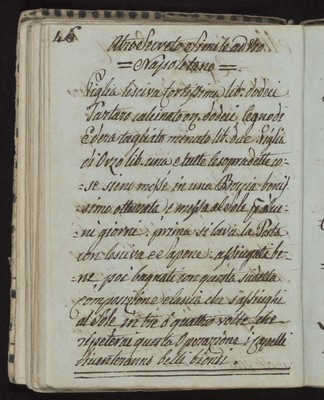 46
Altro Secreto Simile ad uso
= Napoletano =
Piglia lesciva fortissima lib. dodeci
Tartaro calcinato on. dodeci legno di
Edera tagliato minuto lib. due Piglia
di Orzo lib. una e tutte le sopradette co-
se sieno messe in una Boccia benis
simo otturata e messa al Sole per alcu-
ni giorni: prima si lavi la Testa
con lesciva e Sapone: asciugata be-
ne poi bagnati con questa sudetta
composizione e lascia che s'asciughi
al Sole in tre ò quattro volte che
ripeterai questa Operazione i Capelli
diventeranno belli biondi.